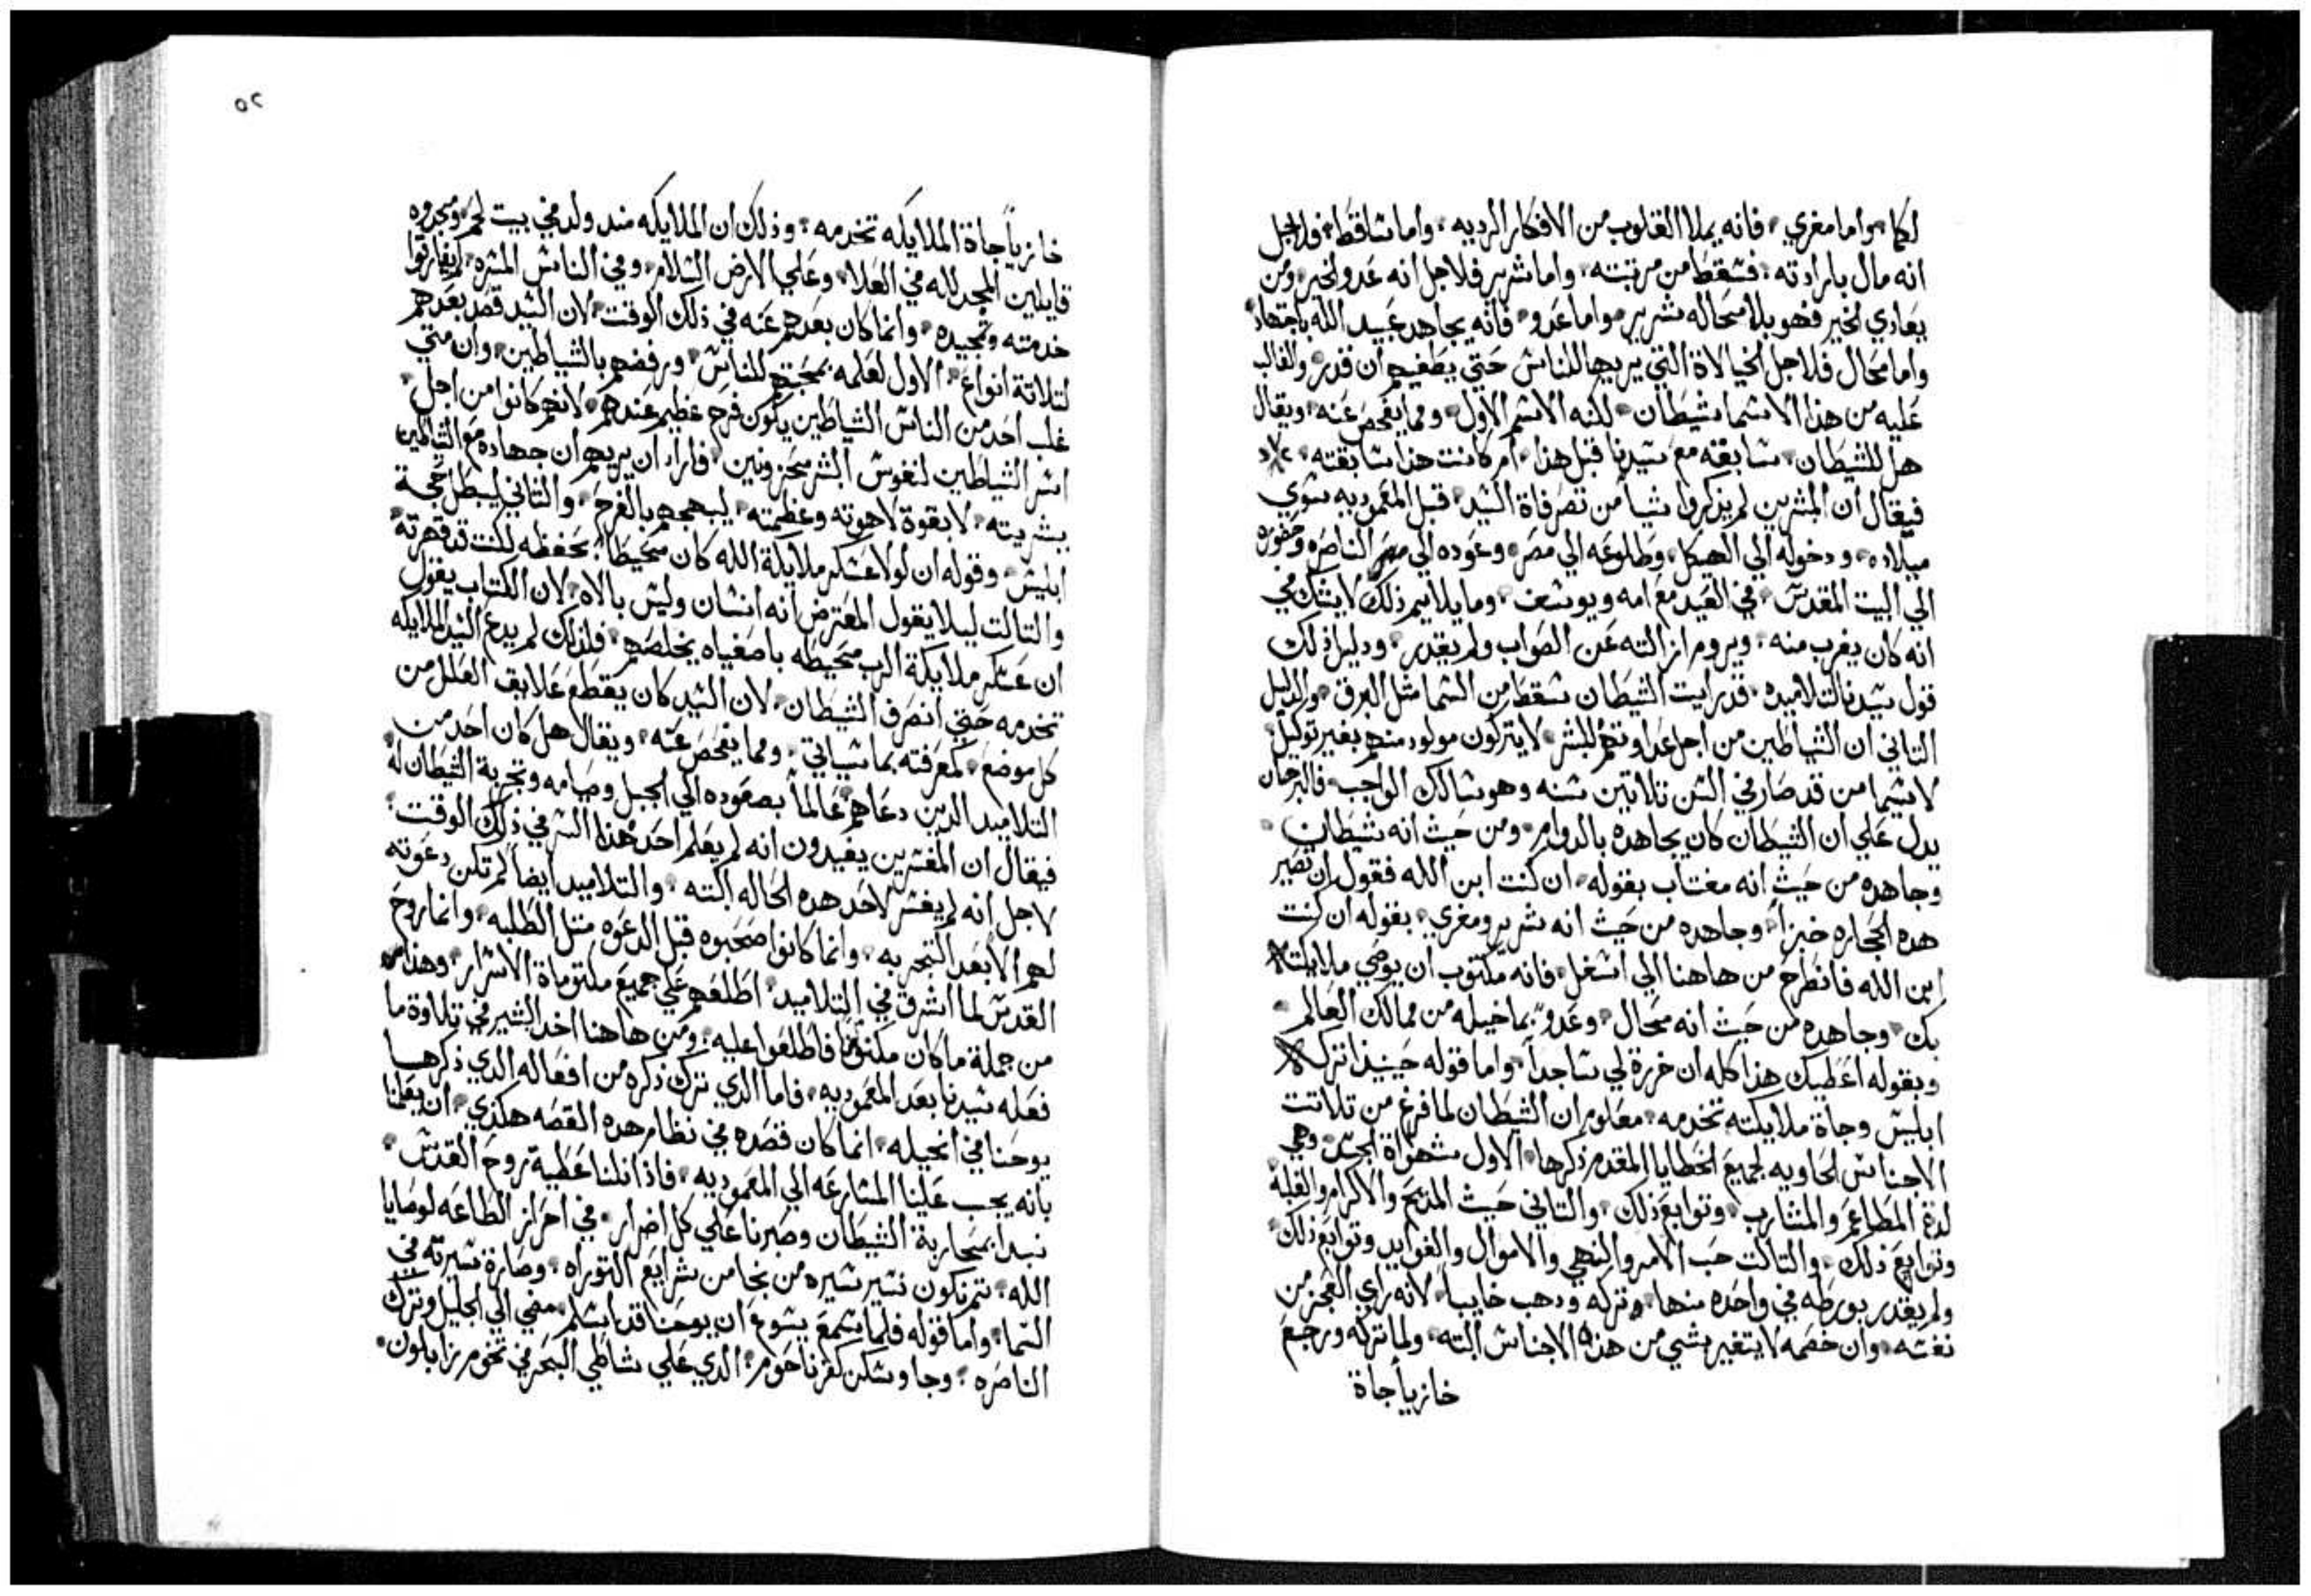 لكما وامامغري فانه يملا القلوب من الافكار الرديه واما ساقط فلاجل
انه مال بارادته فسقط من مرتبته واما شرير فلاجل انه عدو الخير ومن
يعادي الخير فهو بلا محاله شرير واما عدو فانه يجاهد عبيد الله باجتهاد
واما محال فلاجل الخيالاة التي يريها للناس حتي يطغيهم ان قدر والغالب
عليه من هذا الاسما شيطان لكنه الاسم الاول ومما يفحص عنه ويقال
هل للشيطان سابقه مع سيدنا قبل هذا ام كانت هذا سابقته
فيقال ان المبشرين لم يذكروا شيا من تصرفاة السيد قبل المعموديه سوي
ميلاده ودخوله الي الهيكل وطلوعه الي مصر وعوده الي الناصره وحضوره
الي البيت المقدس في العيد مع امه ويوسف وما يلايم ذلك لا يشك في
انه كان يقرب منه ويروم ازالته عن الصواب ولم يقدر ودليل ذلك
قول سيدنا لتلاميده قد رايت الشيطان سقط من السما مثل البرق والدليل
التاني ان الشياطين من اجل عداوتهم للبشر لا يتركون مولود منهم بغير توكيل
لا سيما من قد صار في السن تلاتين سنه وهو سالك الواجب فالبرهان
يدل علي ان الشيطان كان يجاهده بالدوام ومن حيث انه شيطان
وجاهده من حيث انه مغتاب بقوله ان كنت ابن الله فقول ان تصير
هده الحجاره خبزاً وجاهده من حيث انه شرير ومغري بقوله ان كنت
ابن الله فانطرح من هاهنا الي اسفل فانه مكتوب ان يوصي ملايكته
بك وجاهده من حيث انه محال وعدو بما خيله من ممالك العالم
وبقوله اعطيك هذا كله ان خررة لي ساجداً واما قوله حينيذ تركه
ابليس وجاة ملايكته تخدمه معلوم ان الشيطان لما فرغ من تلاتت
الاجناس الحاويه لجميع الخطايا المقدم ذكرها الاول شهواة الجسد وهي
لدة المطاعم والمشارب وتوابع ذلك والتاني حيث المديح والاكرام والغلبة
وتوابع ذلك والتالت حب الامر والنهي والاموال والفوايد وتوابع ذلك
ولم يقدر يورطه في واحده منها وتركه ودهب خايباً لانه راي العجز من
نفسه وان خصمه لا يتغير بشي من هذه الاجناس البته ولما تركه ورجع
خازياً جاة
٥٢
خازياً جاة الملايكه تخدمه وذلك ان الملايكه مند ولد في بيت لحم ومجدوه
قايلين المجد لله في العلا وعلي الارض السلام وفي الناس المسره لم يفارقوا
خدمته وتمجيده وانما كان بعدهم عنه في ذلك الوقت لان السيد قصد بعدهم
لتلاتة انواع الاول لعلمه بمحبتهم للناس ورفضهم بالشياطين وان متي
غلب احد من الناس الشياطين يكون فرح عظيم عندهم لانهم كانوا من اجل
اسر الشياطين لنفوس البشر محزونين فاراد ان يريهم ان جهاده مع الشياطين
ببشريته لا بقوة لاهوته وعظمته ليبهجهم بالفرح والتاني ليبطل حجة
ابليس وقوله ان لولا عسكر ملايكة الله كان محيطاً بحفظه لكنت قد قهرته
والتالت ليلا يقول المعترض انه انسان وليس بالاه لان الكتاب يقول
ان عسكر ملايكة الرب محيطه باصفياه يخلصهم فلذلك لم يدع السيد الملايكه
تخدمه حتي انصرف الشيطان لان السيد كان يقطع علايق العلل من
كل موضع لمعرفته بما سياتي ومما يفحص عنه ويقال هل كان احد من
التلاميد الدين دعاهم عالماً بصعوده الي الجبل وصيامه وتجربة الشيطان له
فيقال ان المفسرين يفيدون انه لم يعلم احد هذا السر في ذلك الوقت
لاجل انه لم يفسر لاحد هده الحاله البته والتلاميد ايضا لم تكن دعوته
لهم الا بعد التجربه وانما كانوا صحبوه قبل الدعوه مثل الطلبه وانما روح
القدس لما اشرق في التلاميد اطلعهم علي جميع مكتوماة الاسرار وهذا
من جملة ما كان مكتوماً فاطلعوا عليه ومن هاهنا اخد البشير في تلاوة ما
فعله سيدنا بعد المعموديه فاما الدي ترك ذكره من افعاله الدي ذكرها
يوحنا في انجيله انما كان قصده في نظام هده القصه هكذي ان يعلمنا
بانه يجب علينا المسارعه الي المعموديه فاذا نلنا عطية روح القدس
نبدا بمحاربة الشيطان وصبرنا علي كل اضرار في احراز الطاعه لوصايا
الله تم نكون نسير سيره من نجا من شرايع التوراه وصارة سيرته في
السما واما قوله فلما سمع يسوع ان يوحنا قد اسلم مضي الي الجليل وترك
الناصره وجا وسكن كفرناحوم الدي علي شاطي البحر في تخوم زابلون